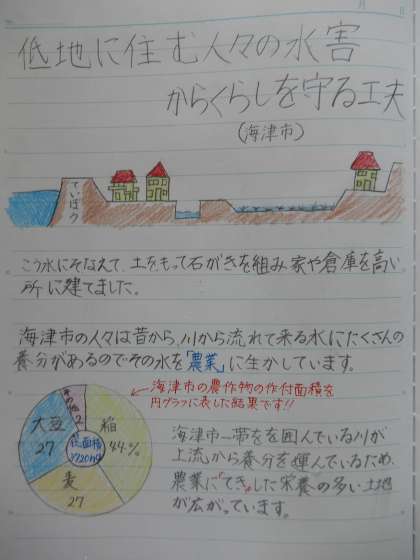 月 日
低地に住む人々の水害
からくらしを守る工夫
(海津市)
ていぼう
こう水にそなえて、土をもって石がきを組み家や倉庫を高い
所に建てました。
海津市の人々は昔から、川から流れて来る水にたくさんの
養分があるのでその水を「農業」に生かしています。
海津市の農作物の作付面積を
円グラフに表した結果です!!
その他 2
大豆
27
稲
44%
総面積
麦
27
海津市一帯をを囲んでいる川が
上流から養分を運んでいるため、
農業に「てき」した栄養の多い土地
が広がっています。